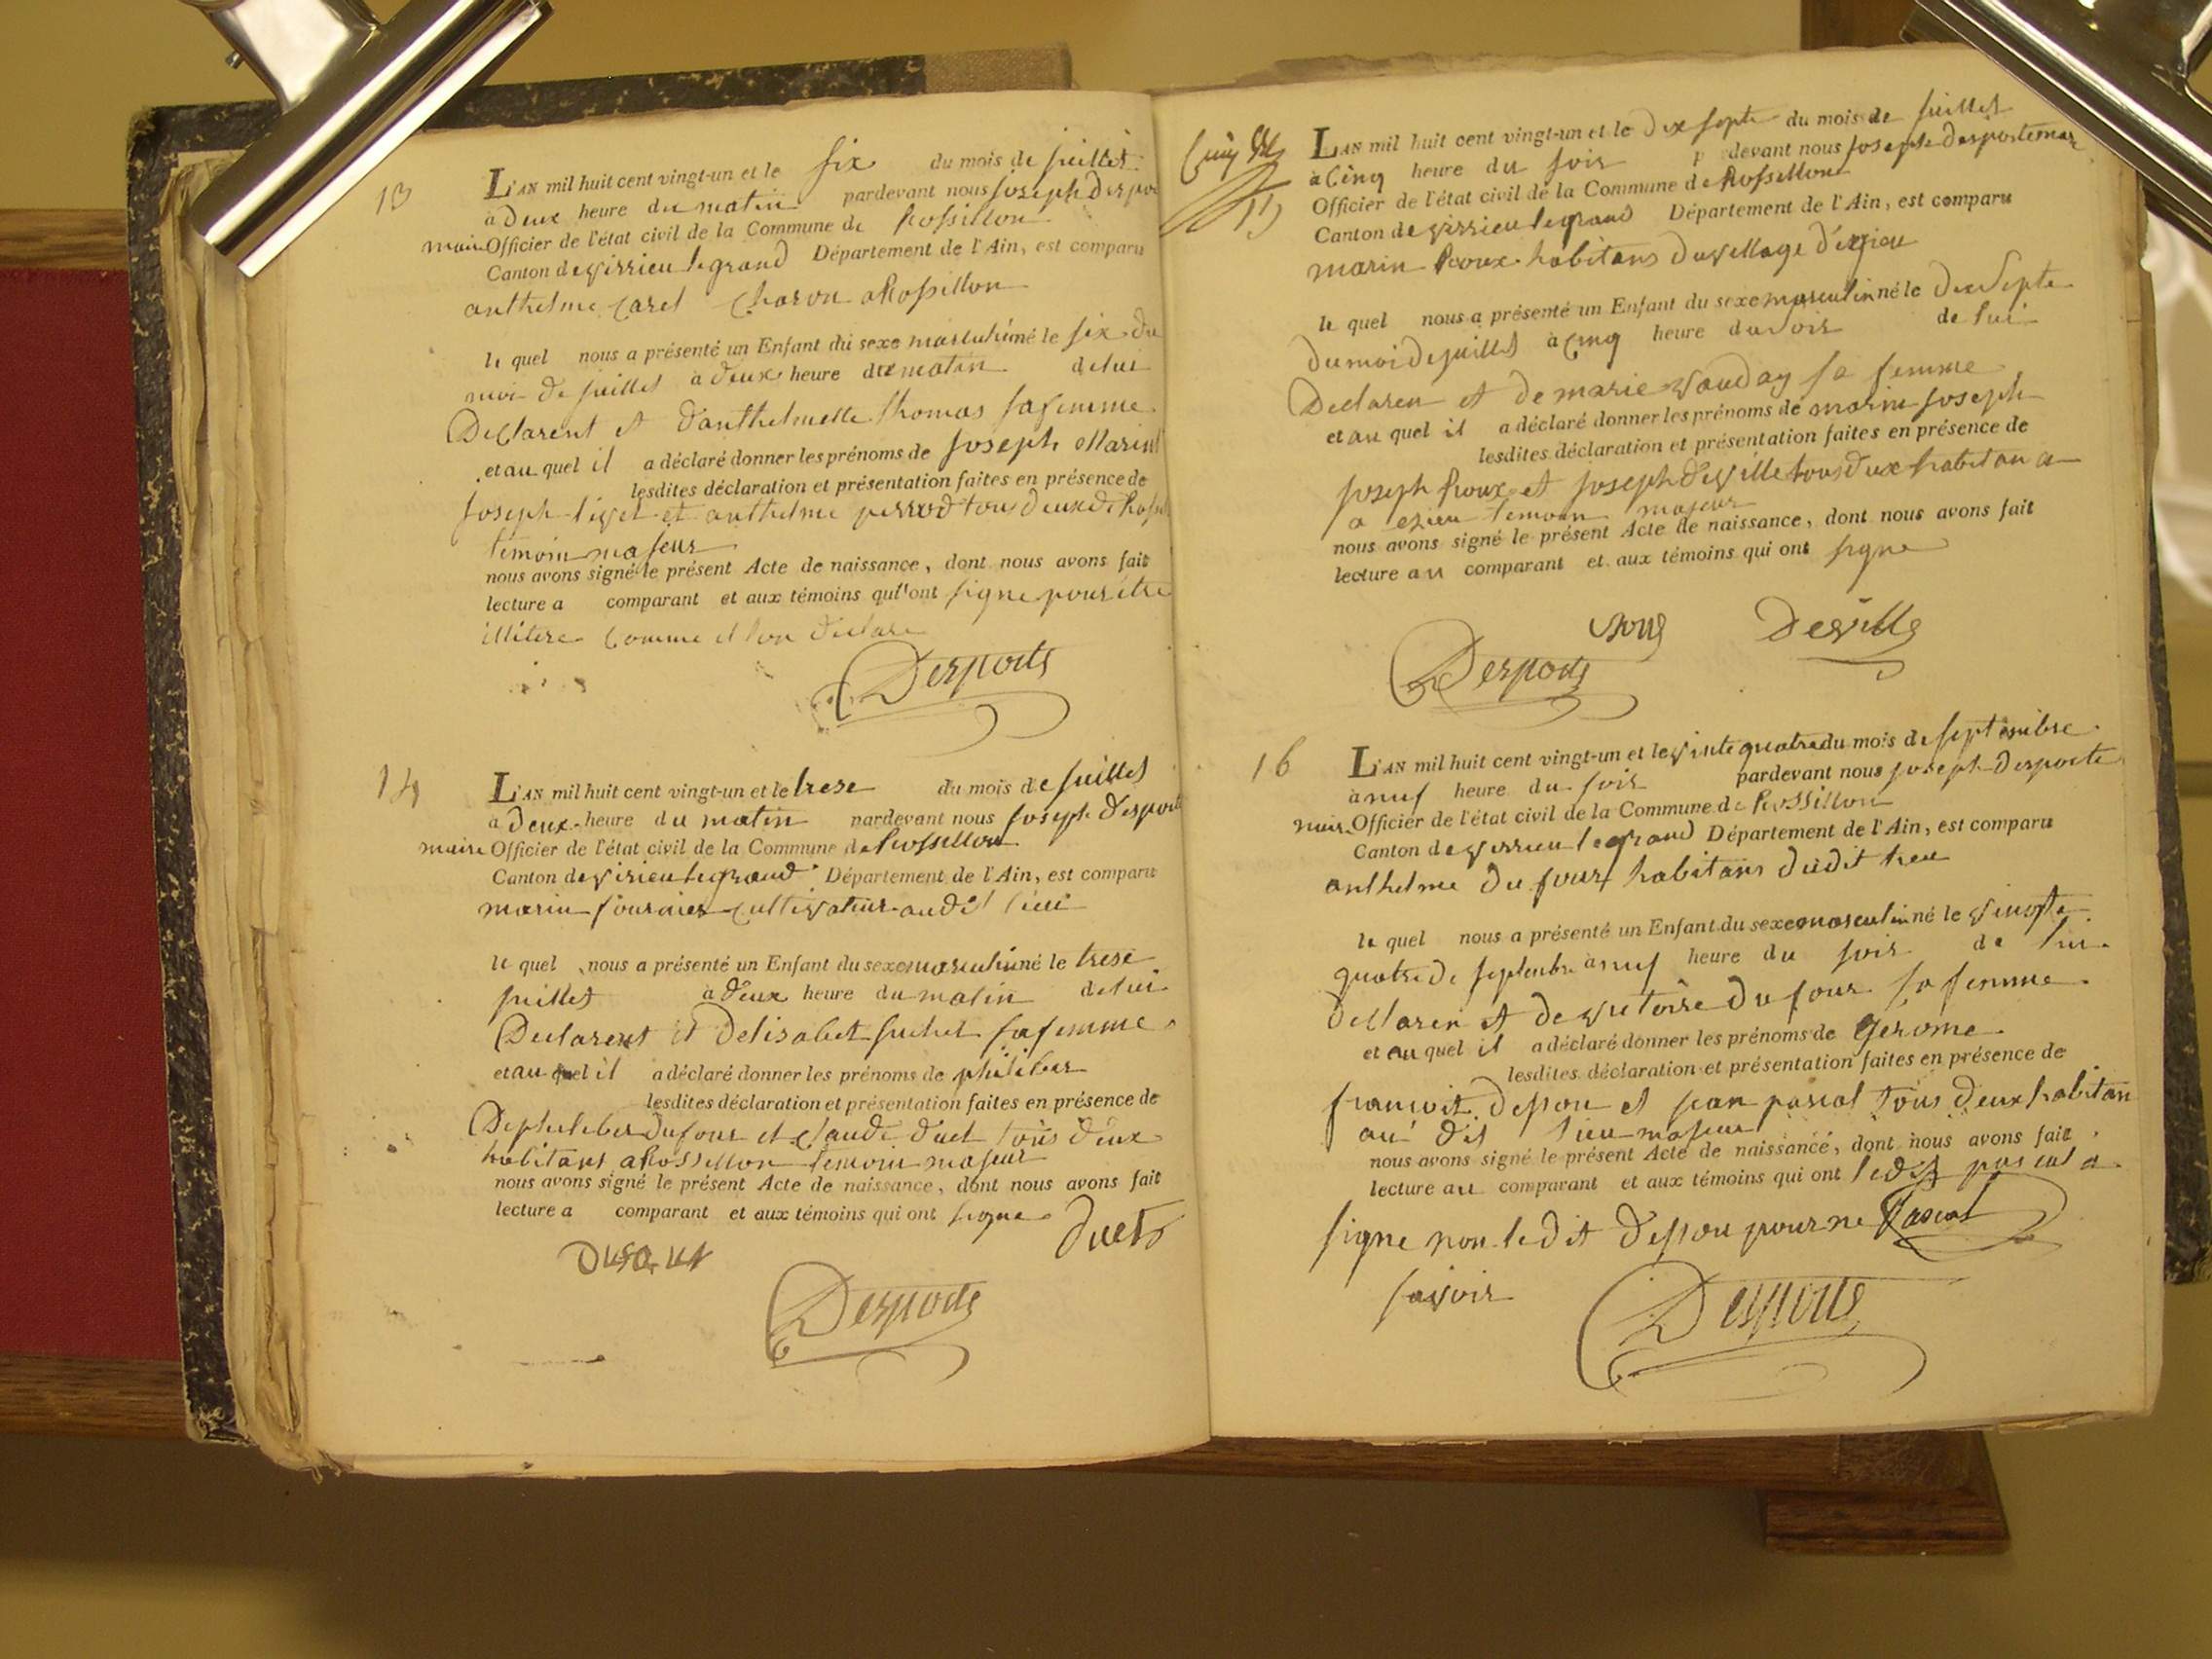 13
L'AN mil huit cent vingt-un et le six du mois de juillet
à deux heure du matin pardevant nous joseph despor
maire Officier de l'état civil de la Commune de Rossillon
Canton de virrieu legrand Département de l'Ain, est comparu
anthelme Carel Charon a Rossillon
le quel nous a présenté un Enfant du sexe masculin né le six du
moi de juillet à deux heure du matin de lui
Declarent et d'anthelmette thomas sa femme
et au quel il a déclaré donner les prénoms de joseph Marin
lesdites déclaration et présentation faites en présence de
joseph et anthelme perrod tous deux de
temoin majeur
nous avons signé le présent Acte de naissance, dont nous avons fait
lecture a comparant et aux témoins qui n'ont signe pour être
illitere comme il lon declare
Desports
14
L'AN mil huit cent vingt-un et le trese du mois de juillet
à deux heure du matin pardevant nous joseph desport
maire Officier de l'état civil de la Commune de Rossillon
Canton de virieu legrand Département de l'Ain, est comparu
marin fournier cultivateur audit lieu
le quel nous a présenté un Enfant du sexe masculin né le trese
juillet à deux heure du matin de lui
Declarent et delisabet suchet sa femme
et au quel il a déclaré donner les prénoms de philiber
lesdites déclaration et présentation faites en présence de
De phileber dufour et Claude duet tous deux
habitans a Rossillon temoin majeur
nous avons signé le présent Acte de naissance, dont nous avons fait
lecture a comparant et aux témoins qui ont signe
duet
Desports
15
L'AN mil huit cent vingt-un et le dix septe du mois de juillet
à Cinq heure du soir pardevant nous joseph desporte mar
Officier de l'état civil de la Commune de Rossillon
Canton de virrieu legrand Département de l'Ain, est comparu
marin Roux habitans du village d'
le quel nous a présenté un Enfant du sexe masculin né le dix septe
du moi de juillet à Cinq heure du soir de lui
Declaren et de marie vauday sa femme
et au quel il a déclaré donner les prénoms de marin joseph
lesdites déclaration et présentation faites en présence de
joseph Roux et joseph deville tous deux habitan a
a temoin majeur
nous avons signé le présent Acte de naissance, dont nous avons fait
lecture au comparant et aux témoins qui ont signe
Deville
Desports
16
L'AN mil huit cent vingt-un et le vinte quatre du mois de septembre
à nuf heure du soir pardevant nous joseph desporte
mair Officier de l'état civil de la Commune de Rossillon
Canton de virrieu legrand Département de l'Ain, est comparu
anthelme du four habitans dudit lieu
le quel nous a présenté un Enfant du sexe masculin né le vingte
quatre de septembre à nuf heure du soir de lui
declaren et de victoire du four sa femme
et au quel il a déclaré donner les prénoms de gerome
lesdites déclaration et présentation faites en présence de
francoit et jean pascal tous deux habitan
au dit lieu majeur
nous avons signé le présent Acte de naissance, dont nous avons fait
lecture au comparant et aux témoins qui ont ledit pascal a
signe non ledit pour ne Pascal
savoir
Desports